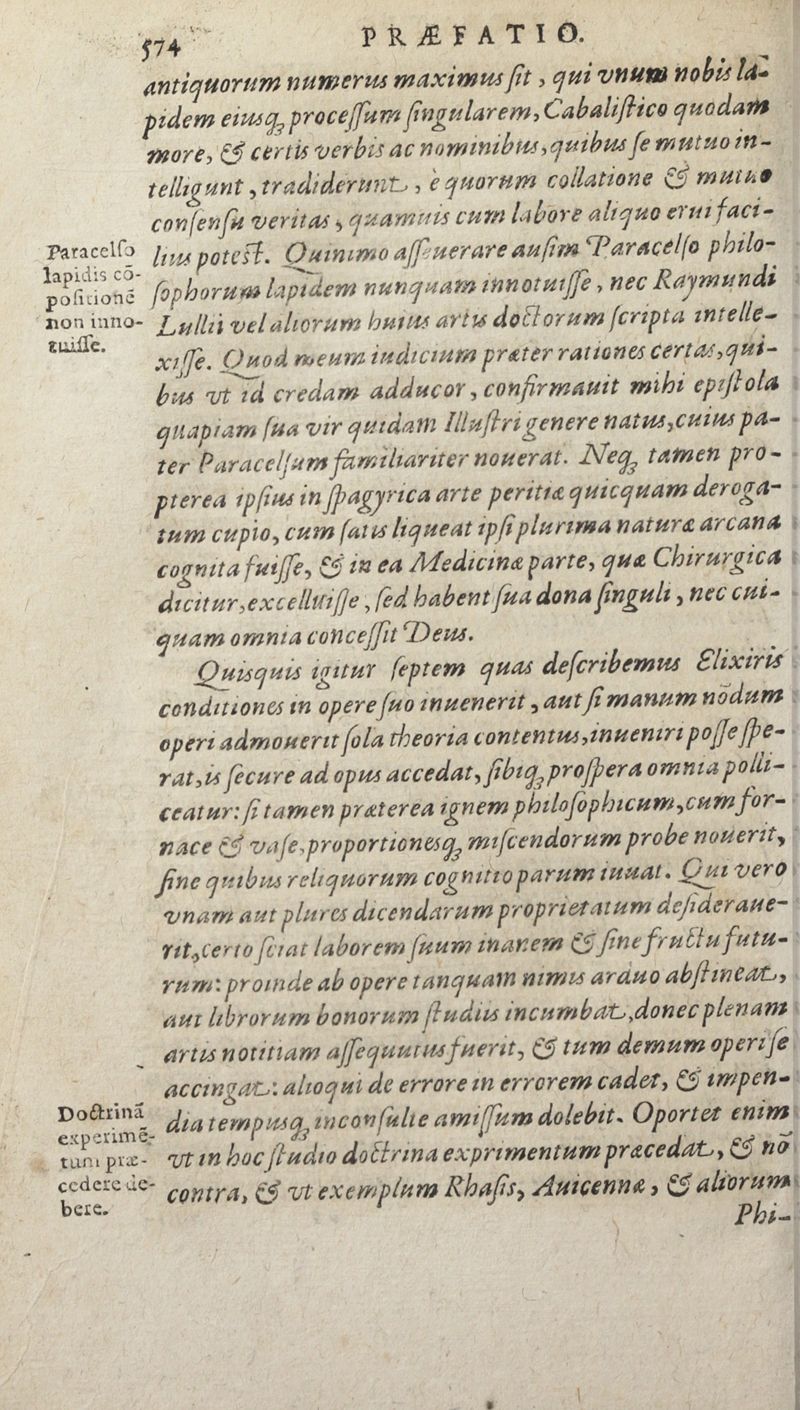 574
PRÆFATIO.
antiquorum numerus maximus ſit, qui vnum nobis la-
pidem eiusq; proceſſum ſingularem, Cabaliſtico quodam
more, & certis verbis ac nominibus, quibus ſe mutuo in-
telligunt, tradiderunt, è quorum collatione & mutuo
conſenſu veritas, quamuis cum labore aliquo erui faci-
lius poteſt. Quinimo aſſeuerare auſim Paracelſo philo-
ſophorum lapidem nunquam innotuiſſe, nec Raymundi
Lullii vel aliorum huius artis doctorum ſcripta intelle-
xiſſe. Quod meum iudicium præter rationes certas, qui-
bus vt id credam adducor, confirmauit mihi epiſtola
quapiam ſua vir quidam Illuſtri genere natus, cuius pa-
ter Paracelſum familiariter nouerat. Neq; tamen pro-
pterea ipſius in ſpagyrica arte peritiæ quicquam deroga-
tum cupio, cum ſatis liqueat ipſi plurima naturæ arcana
cognita fuiſſe, & in ea Medicinæ parte, quæ Chirurgica
dicitur, excelluiſſe, ſed habent ſua dona ſinguli, nec cui-
quam omnia conceſſit Deus.
Quisquis igitur ſeptem quas deſcribemus Elixiris
conditiones in opere ſuo inuenerit, aut ſi manum nōdum
operi admouerit ſola theoria contentus, inueniri poſſe ſpe-
rat, is ſecure ad opus accedat, ſibiq; proſpera omnia polli-
ceatur: ſi tamen præterea ignem philoſophicum, cum for-
nace & vaſe, proportionesq; miſcendorum probe nouerit,
ſine quibus reliquorum cognitio parum iuuat. Qui vero
vnam aut plures dicendarum proprietatum deſideraue-
rit, certo ſciat laborem ſuum inanem & ſine fructu futu-
rum: proinde ab opere tanquam nimis arduo abſtineat,
aut librorum bonorum ſtudiis incumbat, donec plenam
artis notitiam aſſequutus fuerit, & tum demum operi ſe
accingat: alioqui de errore in errorem cadet, & impen-
dia tempusq; inconſulte amiſſum dolebit. Oportet enim
vt in hoc ſtudio doctrina exprimentum præcedat, & nō
contra, & vt exemplum Rhaſis, Auicennæ, & aliorum
Phi-
Paracelſo
lapidis cō-
poſitionē
non inno-
tuiſſe.
Doctrinā
experimē-
tum præ-
cedere de-
bere.